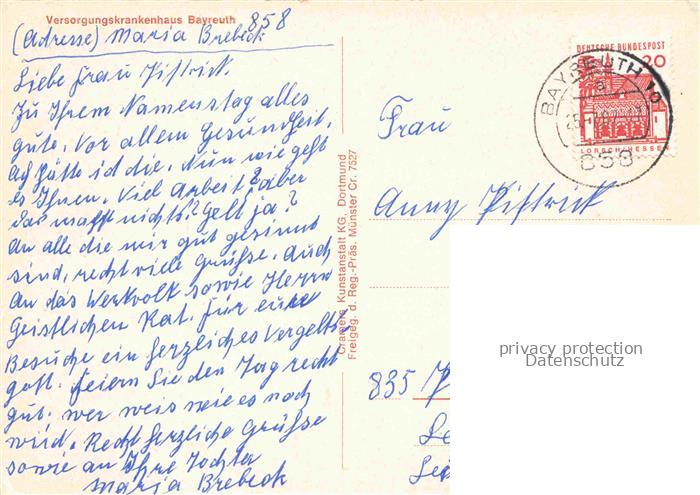 Versorgungskrankenhaus Bayreuth 858
(Adresse) Maria Brebeck
Liebe Frau Pistrick.
Zu Ihrem Namenstag alles
gute. Vor allem Gesundheit.
Ach hätte ich die. Nun wie geht
es Ihnen. Viel Arbeit? aber
das macht nichts? Gelt ja?
An alle die mir gut gesinnt
sind, recht viele Grüsse. Auch
An das Werkvolk sowie Herrn
Geistlichen Rat. Für eure
Besuche ein herzliches Vergelts
gott. Feiern Sie den Tag recht
gut. wer weis wie es noch
wird. Recht herzliche Grüsse
sowie an Ihre Tochter
Maria Brebeck
Cramers Kunstanstalt KG., Dortmund
Freigeg. d. Reg.-Präs. Münster Cr. 7527
DEUTSCHE BUNDESPOST
20
LORSCH/HESSEN
BAYREUTH
858
Frau
Anny Pistrick
835
privacy protection
Datenschutz